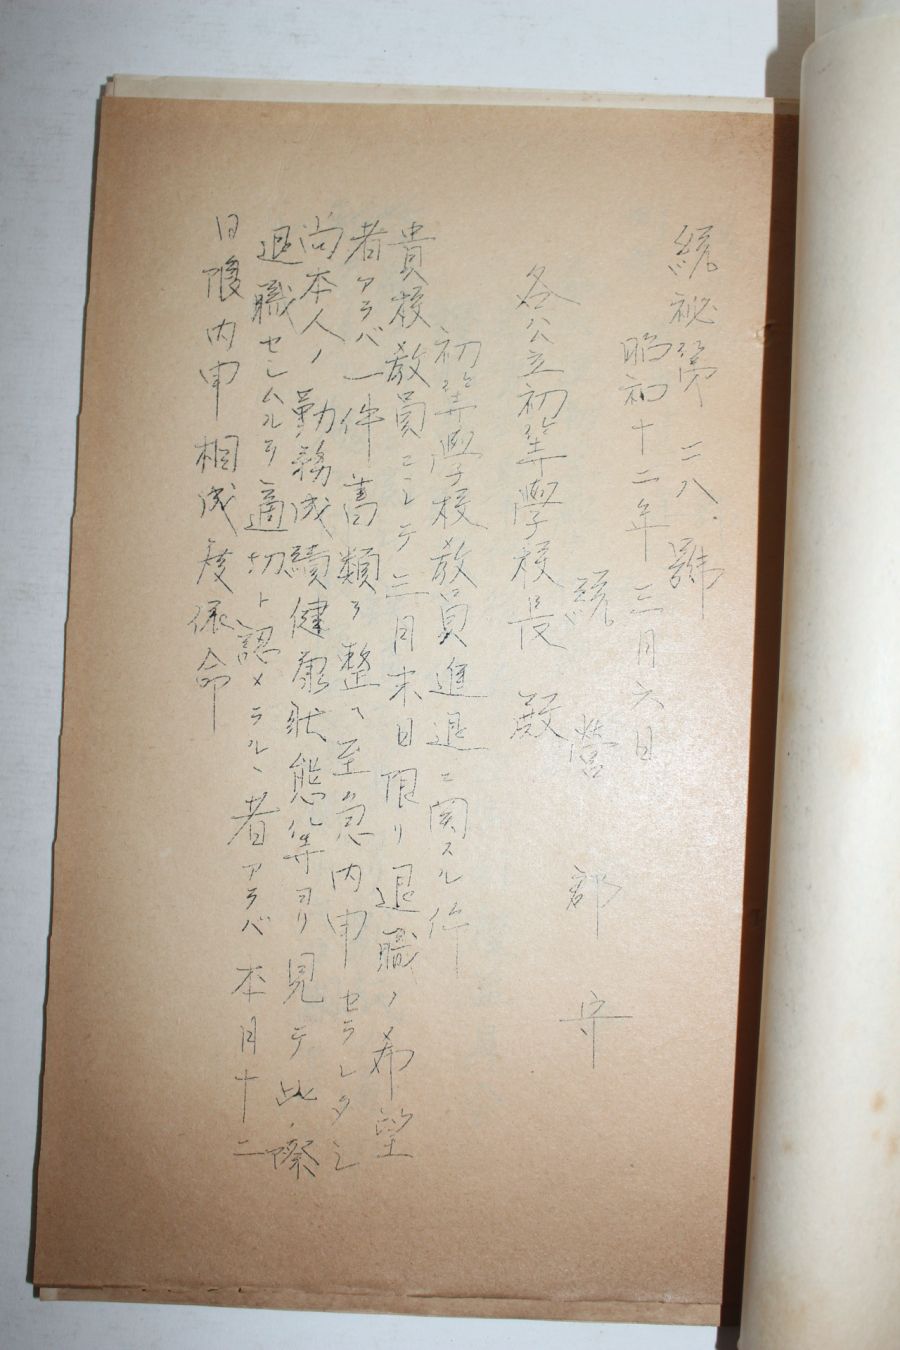 統祕第二八號
昭和十二年三月六日
統營郡守
各公立初等學校長殿
初等學校敎員進退ニ関スル件
貴校敎員ニシテ三月末日限リ退職ノ希望
者アラバ一件書類ヲ整ヘ至急内申セラレタシ
尚本人ノ勤務成績健康狀態等ヨリ見テ此ノ際
退職セシムルヲ適切ト認メラルヽ者アラバ本月十二
日限内申相成度依命